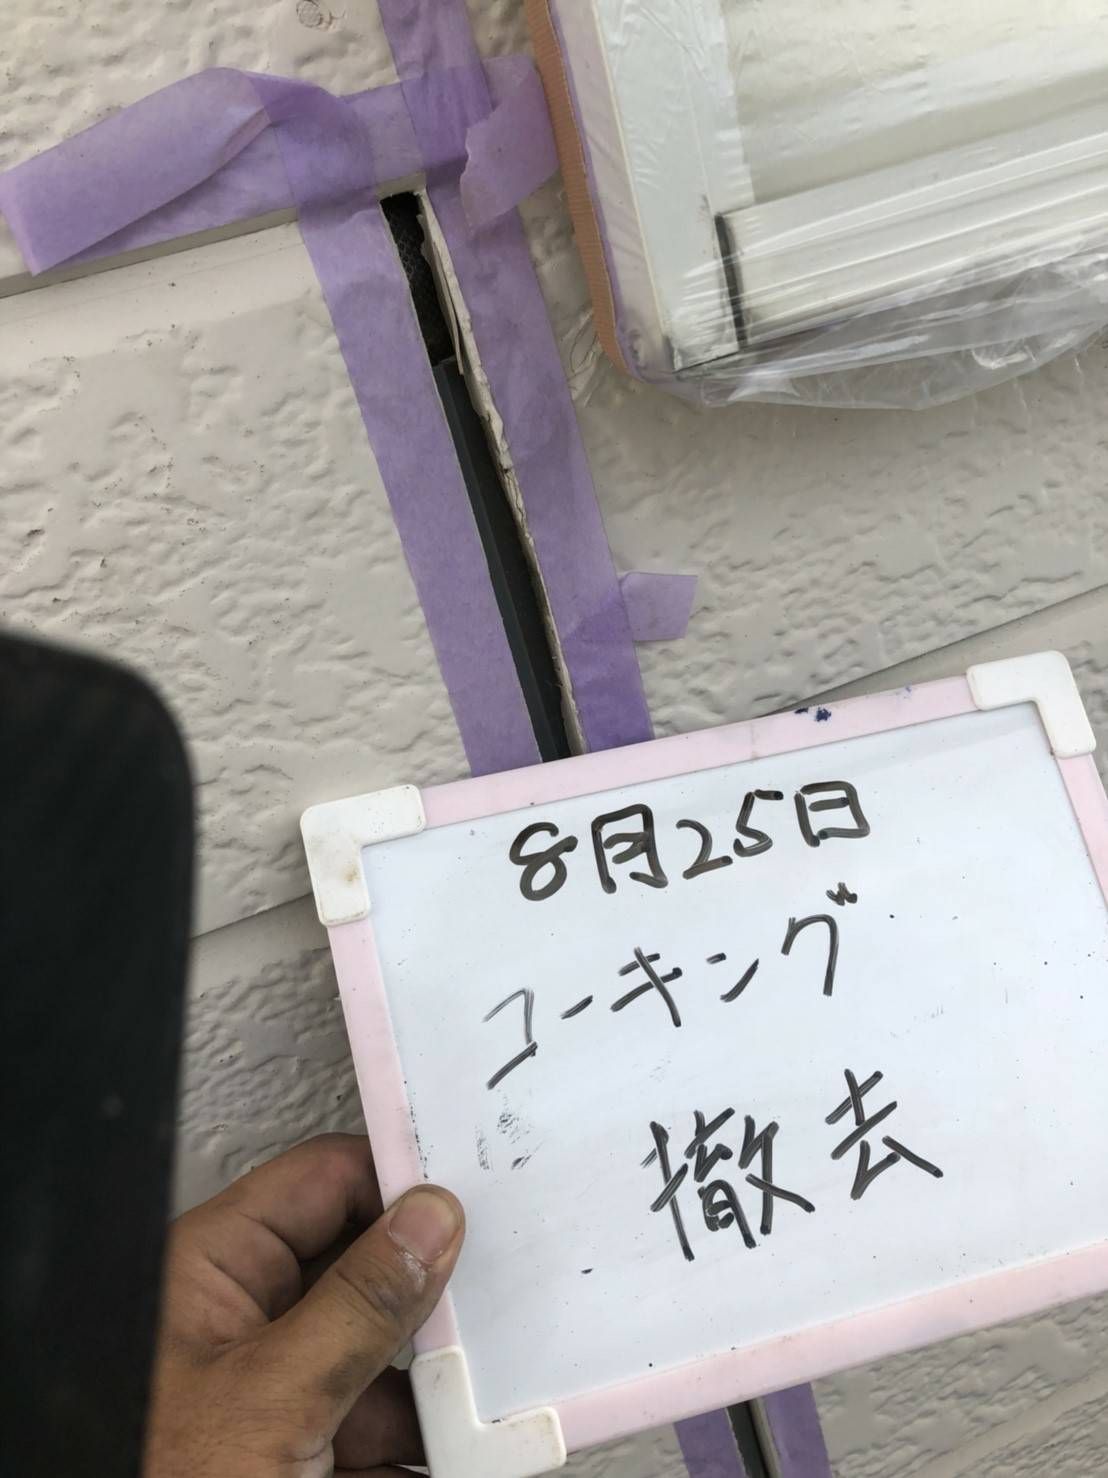 8月25日
コーキング
撤去